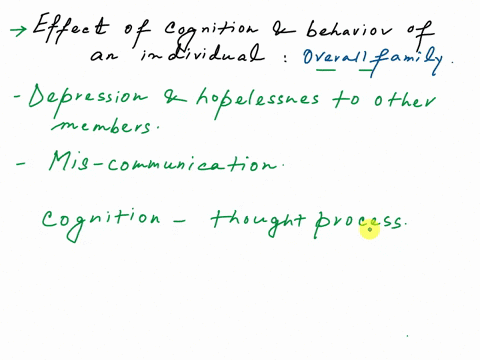 → Effect of cognition & behavior of
an individual : Overall family.
- Depression & hopelessnes to other
members.
- Mis-communication.
Cognition - thought process.